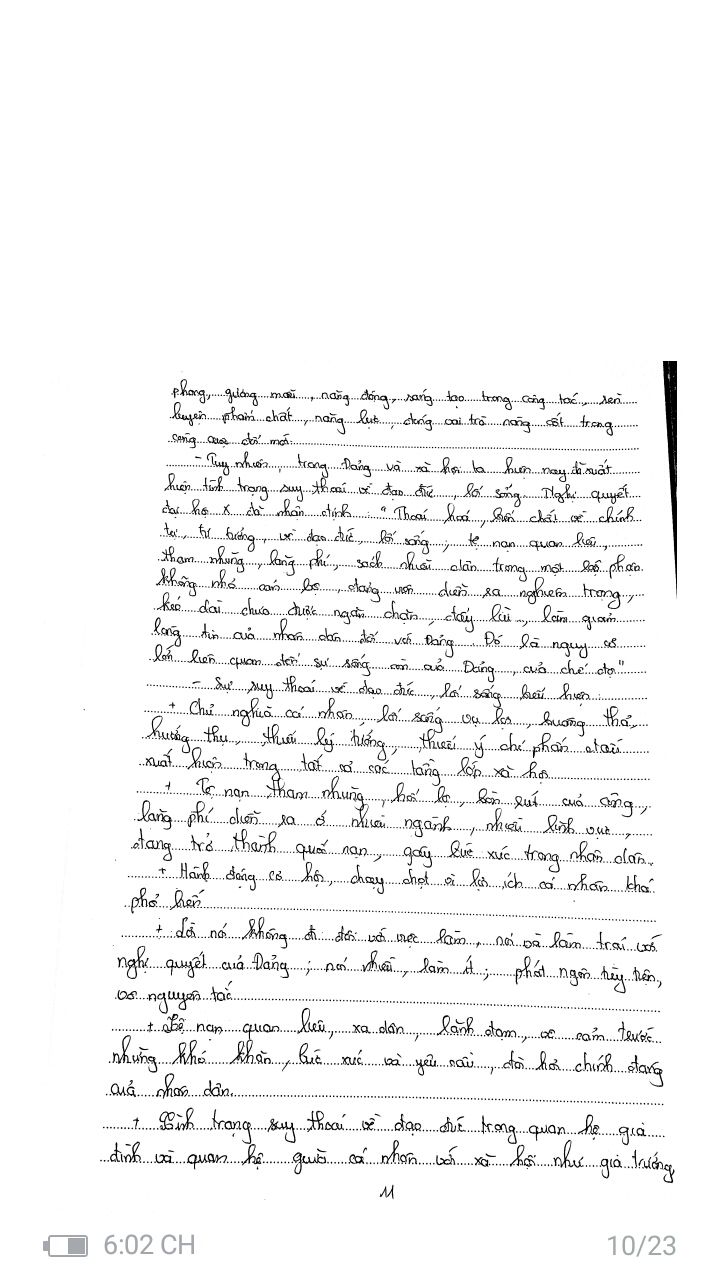 phong, gương mẫu, năng động, sáng tạo trong công tác, rèn
luyện phẩm chất, năng lực, đóng vai trò nòng cốt trong
công cuộc đổi mới.
- Tuy nhiên, trong Đảng và xã hội ta hiện nay đã xuất
hiện tình trạng suy thoái về đạo đức, lối sống. Nghị quyết
đại hội X đã nhận định: "Thoái hoá, biến chất về chính
trị, tư tưởng, về đạo đức, lối sống; tệ nạn quan liêu,
tham nhũng, lãng phí, sách nhiễu dân trong một bộ phận
không nhỏ cán bộ, đang còn diễn ra nghiêm trọng,
kéo dài chưa được ngăn chặn, đẩy lùi, làm giảm
lòng tin của nhân dân đối với Đảng. Đó là nguy cơ
lớn liên quan đến sự sống còn của Đảng, của chế độ"
- Sự suy thoái về đạo đức, lối sống biểu hiện:
+ Chủ nghĩa cá nhân, lối sống vụ lợi, buông thả,
hưởng thụ, thiếu lý tưởng, thiếu ý chí phấn đấu
xuất hiện trong tất cả các tầng lớp xã hội
+ Tệ nạn tham nhũng, hối lộ, bòn rút của công,
lãng phí diễn ra ở nhiều ngành, nhiều lĩnh vực,
đang trở thành quốc nạn, gây bức xúc trong nhân dân.
+ Hành động cơ hội, chạy chọt vì lợi ích cá nhân khá
phổ biến
+ Lời nói không đi đôi với việc làm, nói và làm trái với
nghị quyết của Đảng; nói nhiều, làm ít; phát ngôn tùy tiện,
vô nguyên tắc
+ Tệ nạn quan liêu, xa dân, lãnh đạm, vô cảm trước
những khó khăn, bức xúc và yêu cầu, đòi hỏi chính đáng
của nhân dân.
+ Tình trạng suy thoái về đạo đức trong quan hệ gia
đình và quan hệ giữa cá nhân với xã hội như gia trưởng,
11
6:02 CH
10/23